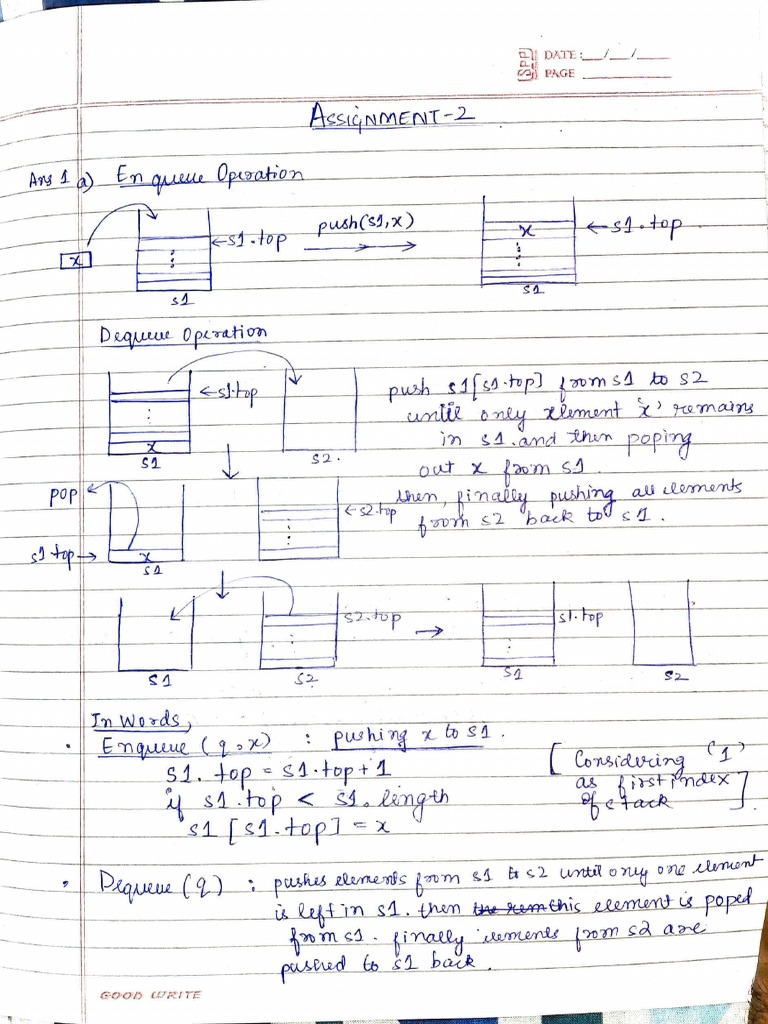 SPP DATE: __/__/____
PAGE
ASSIGNMENT-2
Ans 1 a) Enqueue Operation
x
←s1.top
push(s1,x)
x
←s1.top
s1
s1
Dequeue Operation
←s1.top
x
s1
s2.
push s1[s1.top] from s1 to s2
until only element 'x' remains
in s1. and then poping
out x from s1.
then, finally pushing all elements
from s2 back to s1.
pop
s1.top→
x
s1
←s2.top
s2.top
s1.top
s1
s2
s1
s2
In Words,
• Enqueue (q,x) : pushing x to s1.
s1.top = s1.top+1
if s1.top < s1.length
s1[s1.top] = x
[Considering '1'
as first index
of stack]
• Dequeue (q) : pushes elements from s1 to s2 until only one element
is left in s1. then this element is poped
from s1. finally elements from s2 are
pushed to s1 back.
GOOD WRITE